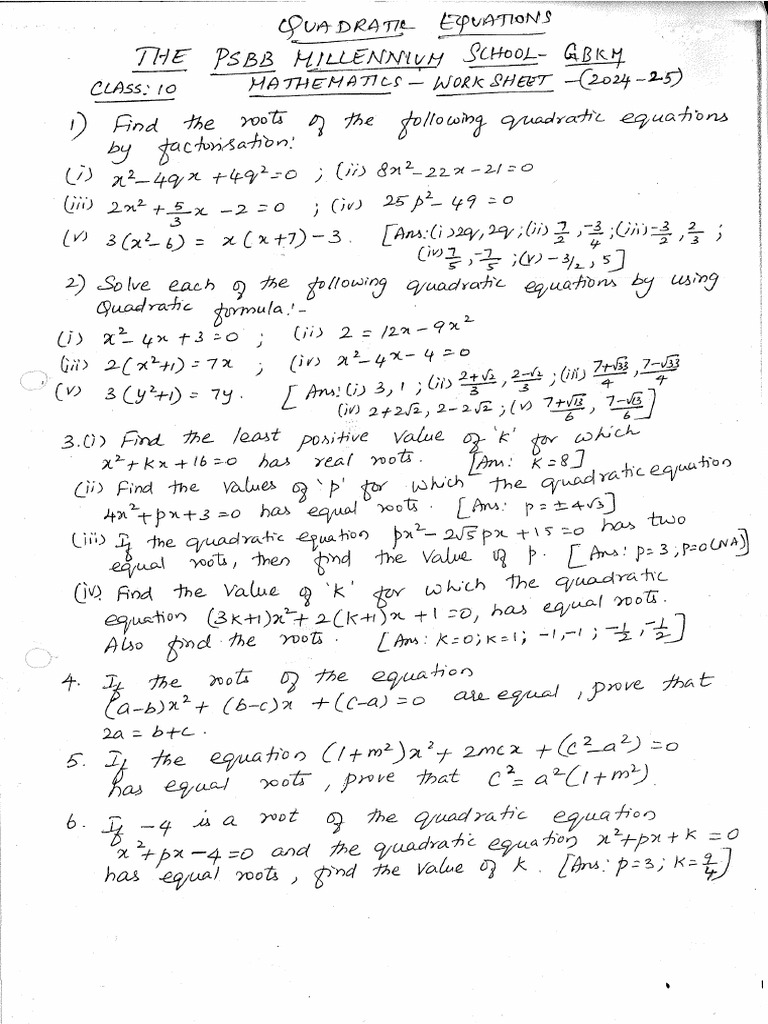 QUADRATIC EQUATIONS
THE PSBB MILLENNIUM SCHOOL- GBKM
CLASS: 10 MATHEMATICS - WORKSHEET - (2024-25)
1) Find the roots of the following quadratic equations
by factorisation:
(i) x² - 4qx + 4q² = 0 ; (ii) 8x² - 22x - 21 = 0
(iii) 2x² + 5/3 x - 2 = 0 ; (iv) 25p² - 49 = 0
(v) 3(x² - 6) = x(x+7) - 3. [Ans: (i) 2q, 2q; (ii) 7/2, -3/4; (iii) -3/2, 2/3 ;
(iv) 7/5, -7/5 ; (v) -3/2, 5]
2) Solve each of the following quadratic equations by using
Quadratic formula:-
(i) x² - 4x + 3 = 0 ; (ii) 2 = 12x - 9x²
(iii) 2(x²+1) = 7x ; (iv) x² - 4x - 4 = 0
(v) 3(y²+1) = 7y. [Ans: (i) 3, 1 ; (ii) 2+√2/3, 2-√2/3 ; (iii) 7+√33/4, 7-√33/4
(iv) 2+2√2, 2-2√2 ; (v) 7+√13/6, 7-√13/6]
3. (i) Find the least positive value of 'k' for which
x² + kx + 16 = 0 has real roots. [Ans: k = 8]
(ii) Find the values of 'p' for which the quadratic equation
4x² + px + 3 = 0 has equal roots. [Ans: p = ± 4√3]
(iii) If the quadratic equation px² - 2√5px + 15 = 0 has two
equal roots, then find the value of p. [Ans: p = 3 ; p=0 (NA)]
(iv). Find the value of 'k' for which the quadratic
equation (3k+1)x² + 2(k+1)x + 1 = 0, has equal roots.
Also find the roots. [Ans: k=0; k=1; -1,-1 ; -1/2, -1/2]
4. If the roots of the equation
(a-b)x² + (b-c)x + (c-a) = 0 are equal, prove that
2a = b+c.
5. If the equation (1+m²)x² + 2mcx + (c²-a²) = 0
has equal roots, prove that c² = a²(1+m²)
6. If -4 is a root of the quadratic equation
x² + px - 4 = 0 and the quadratic equation x² + px + k = 0
has equal roots, find the value of k. [Ans: p=3; k=9/4]
1